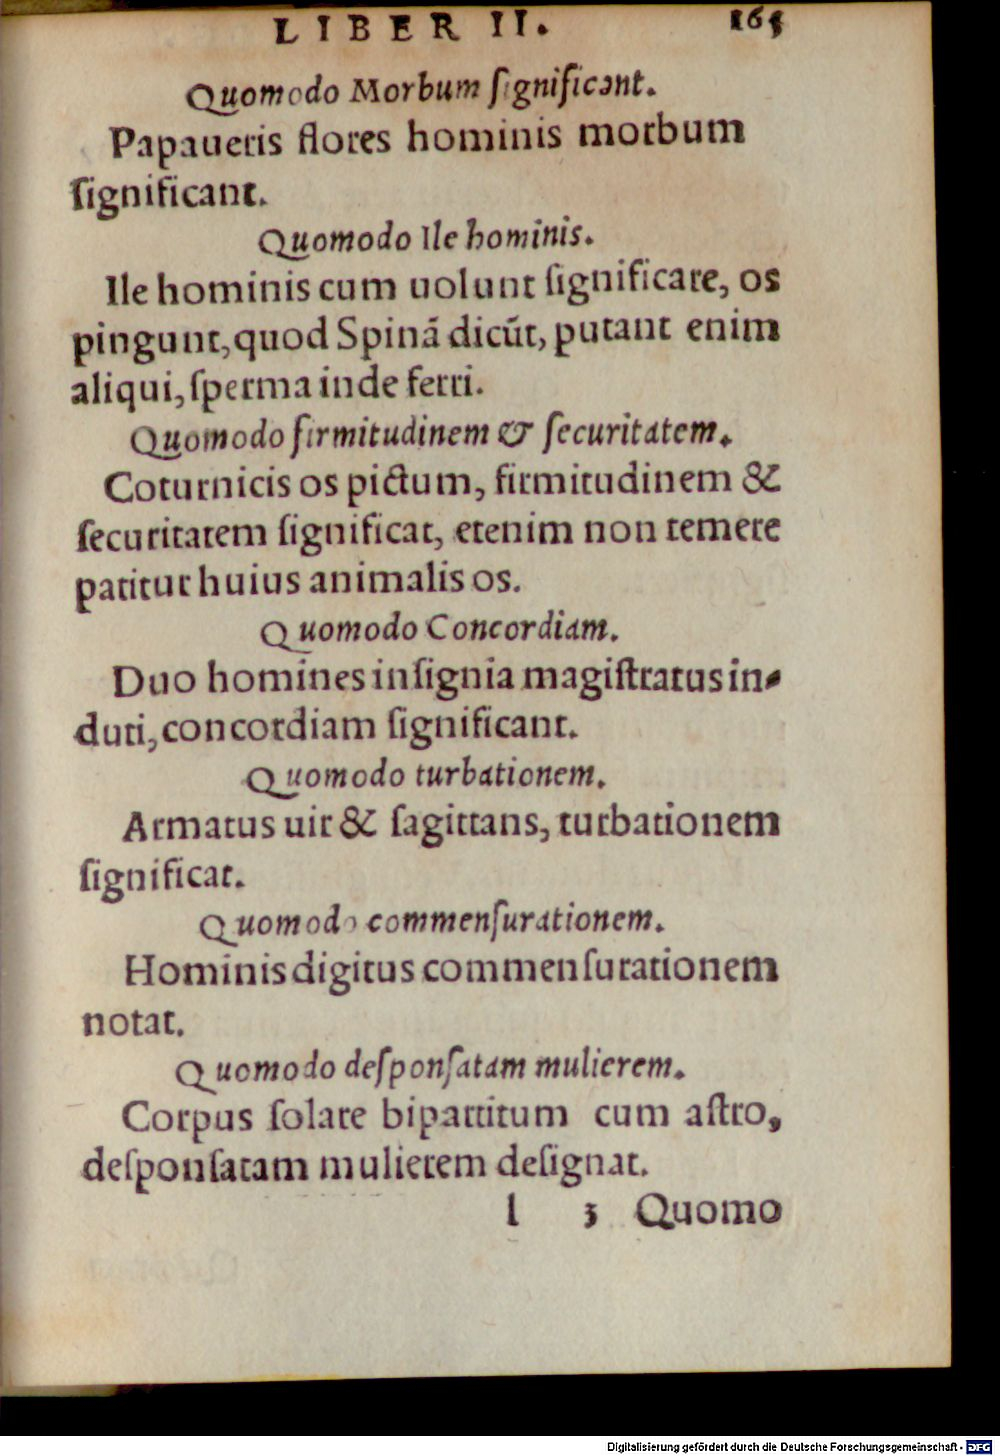 LIBER II. 165
Quomodo Morbum ſignificant.
Papaueris flores hominis morbum
ſignificant.
Quomodo Ile hominis.
Ile hominis cum uolunt ſignificare, os
pingunt, quod Spinã dicũt, putant enim
aliqui, ſperma inde ferri.
Quomodo firmitudinem & ſecuritatem.
Coturnicis os pictum, firmitudinem &
ſecuritatem ſignificat, etenim non temere
patitur huius animalis os.
Quomodo Concordiam.
Duo homines inſignia magiſtratus in-
duti, concordiam ſignificant.
Quomodo turbationem.
Armatus uir & ſagittans, turbationem
ſignificat.
Quomodo commenſurationem.
Hominis digitus commenſurationem
notat.
Quomodo deſponſatam mulierem.
Corpus ſolare bipartitum cum aſtro,
deſponſatam mulierem deſignat.
l 3 Quomo
Digitalisierung gefördert durch die Deutsche Forschungsgemeinschaft - DFG